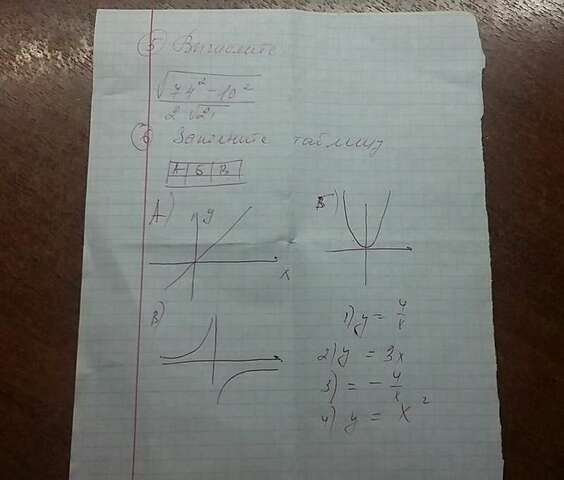 5 Вычислите
√74² - 10²
2√21
6 Заполните таблицу
А Б В
А) y
x
Б)
В)
1) y = 4/x
2) y = 3x
3) = - 4/x
4) y = x²